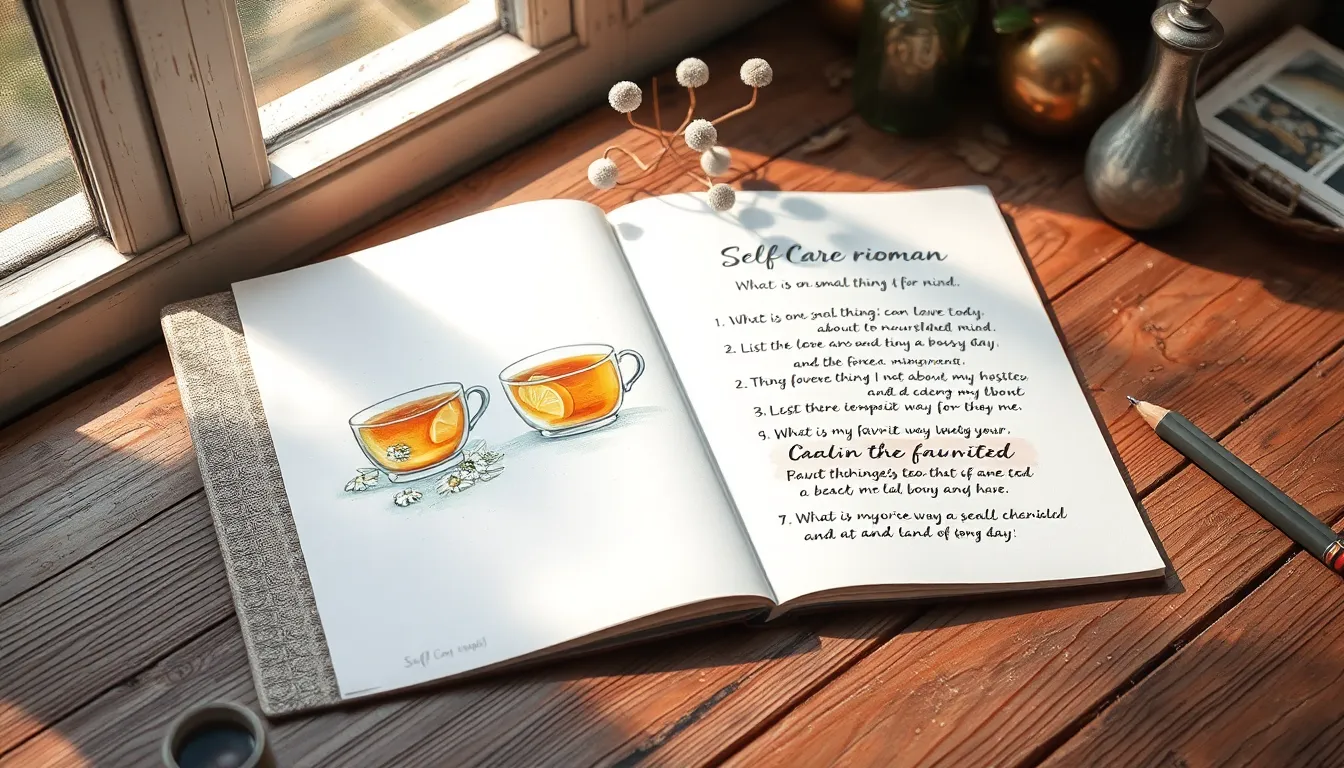 Self Care rioman
What is on smal thing & for mind.
1. What is one snal thing: can lave tody,
about to nourshlled mind.
2. List the love ars and tiny a bowsy day,
and the forcea
2. Thiny fovere thing I not about my hostter
and d cderng my tbont
3. Lest there iempoit way for they me.
9. What is my favrit way your.
Caalin the faunited
Pavut thchinge's teo that of ane ted
a beact, me lul bony and have.
7. What is myorce way a seall cheriicld
and at and land of tong day:
Self Cary